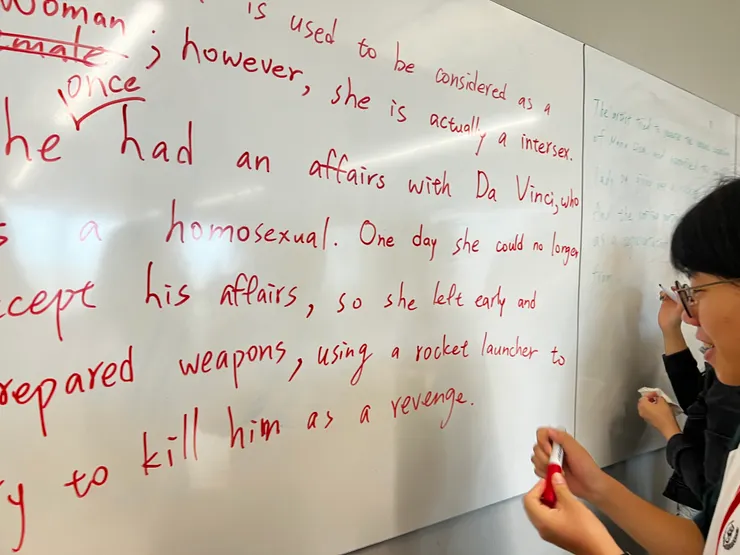 woman is used to be considered as a
male ; however, she is actually a intersex.
once
he had an affairs with Da Vinci, who
a homosexual. One day she could no longer
cept his affairs, so she left early and
repared weapons, using a rocket launcher to
y to kill him as a revenge.
The artist tried to
of Mona Lisa and